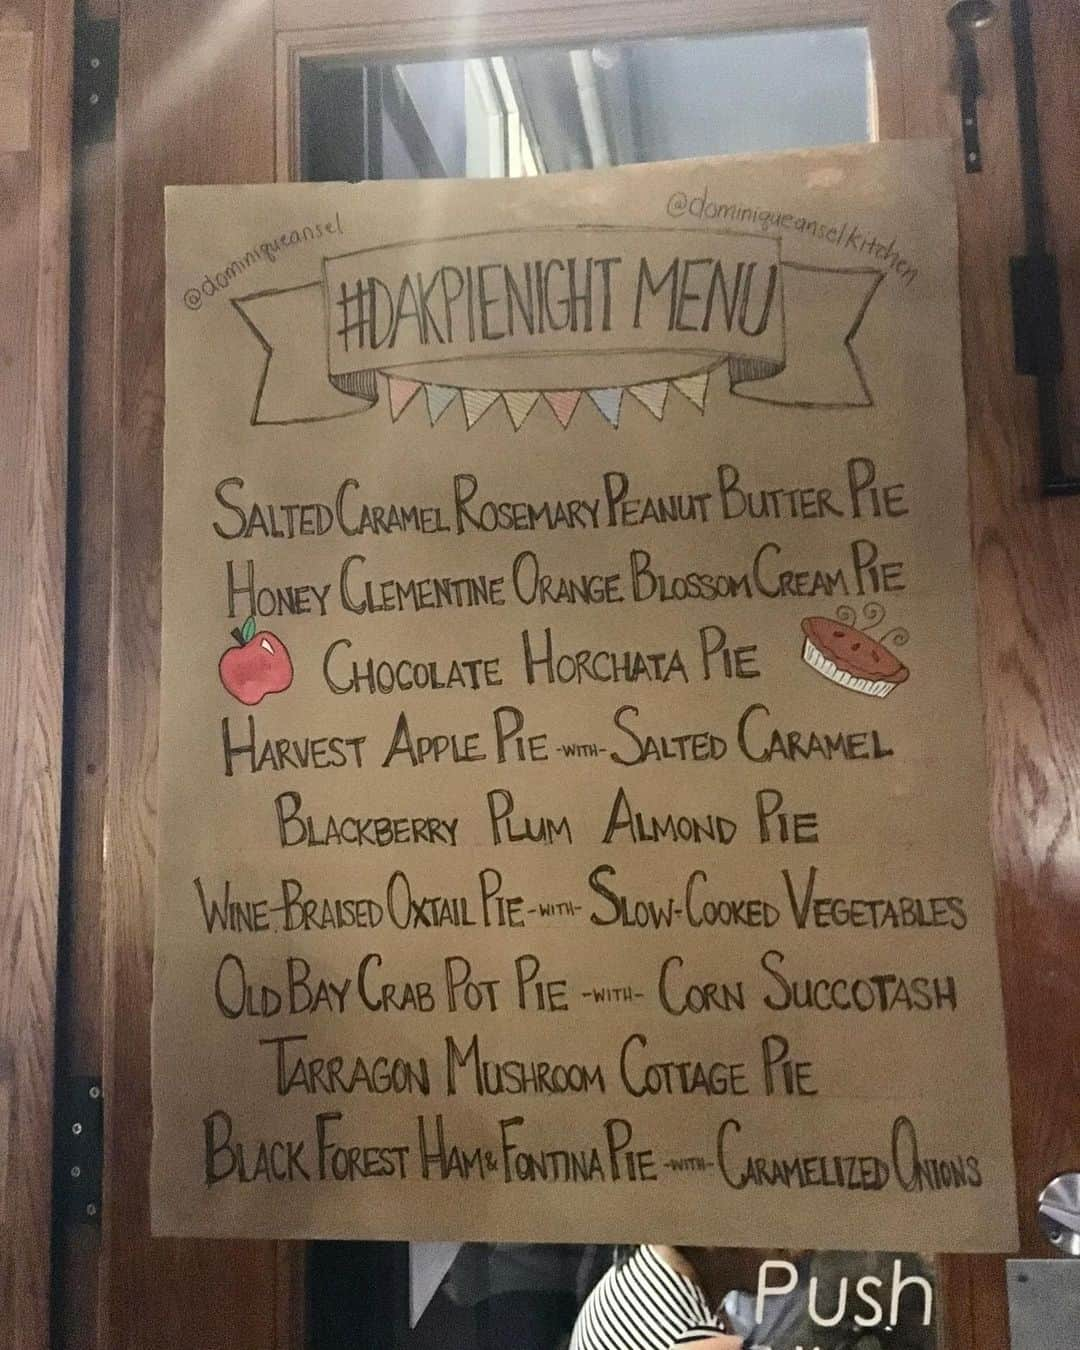 @dominiqueansel
@dominiqueanselkitchen
#DAKPIENIGHT MENU
SALTED CARAMEL ROSEMARY PEANUT BUTTER PIE
HONEY CLEMENTINE ORANGE BLOSSOM CREAM PIE
CHOCOLATE HORCHATA PIE
HARVEST APPLE PIE -WITH- SALTED CARAMEL
BLACKBERRY PLUM ALMOND PIE
WINE-BRAISED OXTAIL PIE -WITH- SLOW-COOKED VEGETABLES
OLD BAY CRAB POT PIE -WITH- CORN SUCCOTASH
TARRAGON MUSHROOM COTTAGE PIE
BLACK FOREST HAM & FONTINA PIE -WITH- CARAMELIZED ONIONS
Push